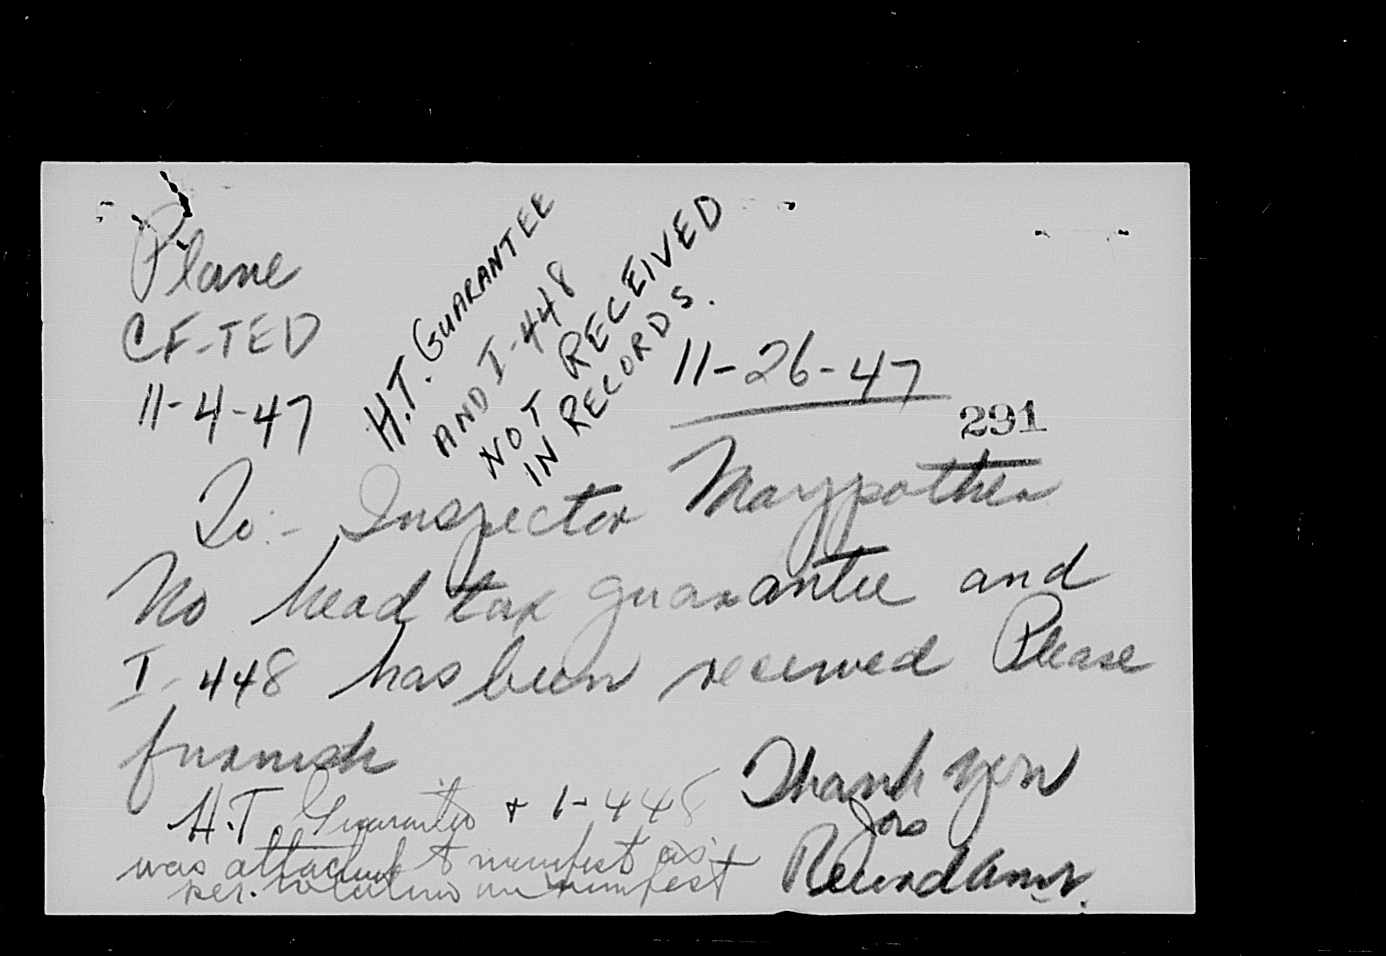 Plane
CF-TED
11-4-47
H.T. GUARANTEE
AND I-448
NOT RECEIVED
IN RECORDS.
11-26-47
291
To:- Inspector Maypother
No head tax guarantee and
I-448 has been received Please
furnish
Thank you
H.T. Guarantee + 1-448
was attached to manifest as
per. notation on manifest